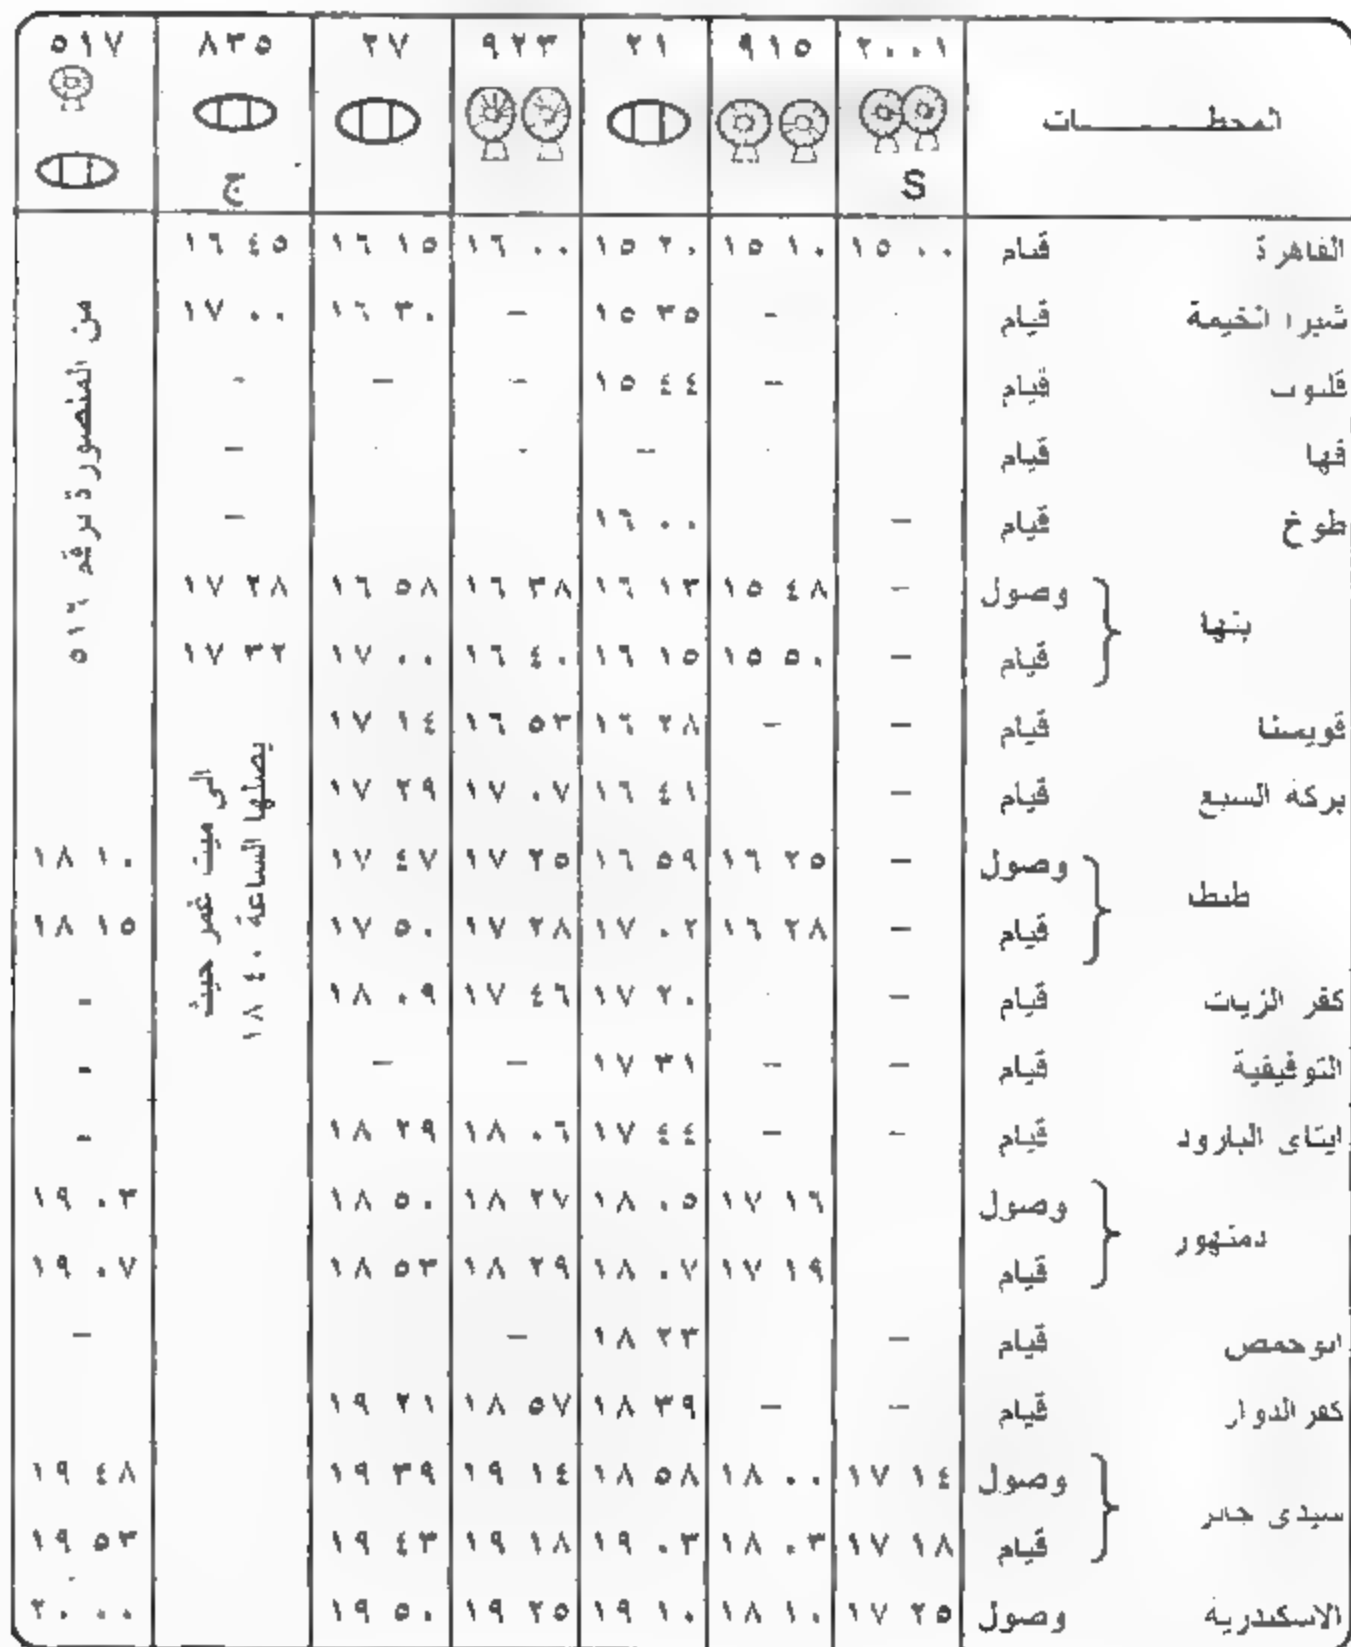 المحطــــــات ٢٠٠١ ٩١٥ ٢١ ٩٢٣ ٢٧ ٨٣٥ ٥١٧
S ج
القاهرة قيام ١٥ ٠٠ ١٥ ١٠ ١٥ ٢٠ ١٦ ٠٠ ١٦ ١٥ ١٦ ٤٥
شبرا الخيمة قيام - ١٥ ٣٥ - ١٦ ٣٠ ١٧ ٠٠
قليوب قيام - ١٥ ٤٤ - - -
قها قيام - -
طوخ قيام - ١٦ ٠٠ -
بنها وصول - ١٥ ٤٨ ١٦ ١٣ ١٦ ٣٨ ١٦ ٥٨ ١٧ ٢٨
قيام - ١٥ ٥٠ ١٦ ١٥ ١٦ ٤٠ ١٧ ٠٠ ١٧ ٣٢
قويسنا قيام - - ١٦ ٢٨ ١٦ ٥٣ ١٧ ١٤
بركة السبع قيام - ١٦ ٤١ ١٧ ٠٧ ١٧ ٢٩
طنطا وصول - ١٦ ٢٥ ١٦ ٥٩ ١٧ ٢٥ ١٧ ٤٧ ١٨ ١٠
قيام - ١٦ ٢٨ ١٧ ٠٢ ١٧ ٢٨ ١٧ ٥٠ ١٨ ١٥
كفر الزيات قيام - ١٧ ٢٠ ١٧ ٤٦ ١٨ ٠٩ -
التوفيقية قيام - - ١٧ ٣١ - - -
ايتاى البارود قيام - - ١٧ ٤٤ ١٨ ٠٦ ١٨ ٢٩ -
دمنهور وصول ١٧ ١٦ ١٨ ٠٥ ١٨ ٢٧ ١٨ ٥٠ ١٩ ٠٣
قيام ١٧ ١٩ ١٨ ٠٧ ١٨ ٢٩ ١٨ ٥٣ ١٩ ٠٧
ابوحمص قيام - ١٨ ٢٣ - -
كفر الدوار قيام - - ١٨ ٣٩ ١٨ ٥٧ ١٩ ٢١
سيدى جابر وصول ١٧ ١٤ ١٨ ٠٠ ١٨ ٥٨ ١٩ ١٤ ١٩ ٣٩ ١٩ ٤٨
قيام ١٧ ١٨ ١٨ ٠٣ ١٩ ٠٣ ١٩ ١٨ ١٩ ٤٣ ١٩ ٥٣
الاسكندرية وصول ١٧ ٢٥ ١٨ ١٠ ١٩ ١٠ ١٩ ٢٥ ١٩ ٥٠ ٢٠ ٠٠
الى ميت غمر حيث
يصلها الساعة ٤٠ ١٨
من المنصورة برقم ٥١٦